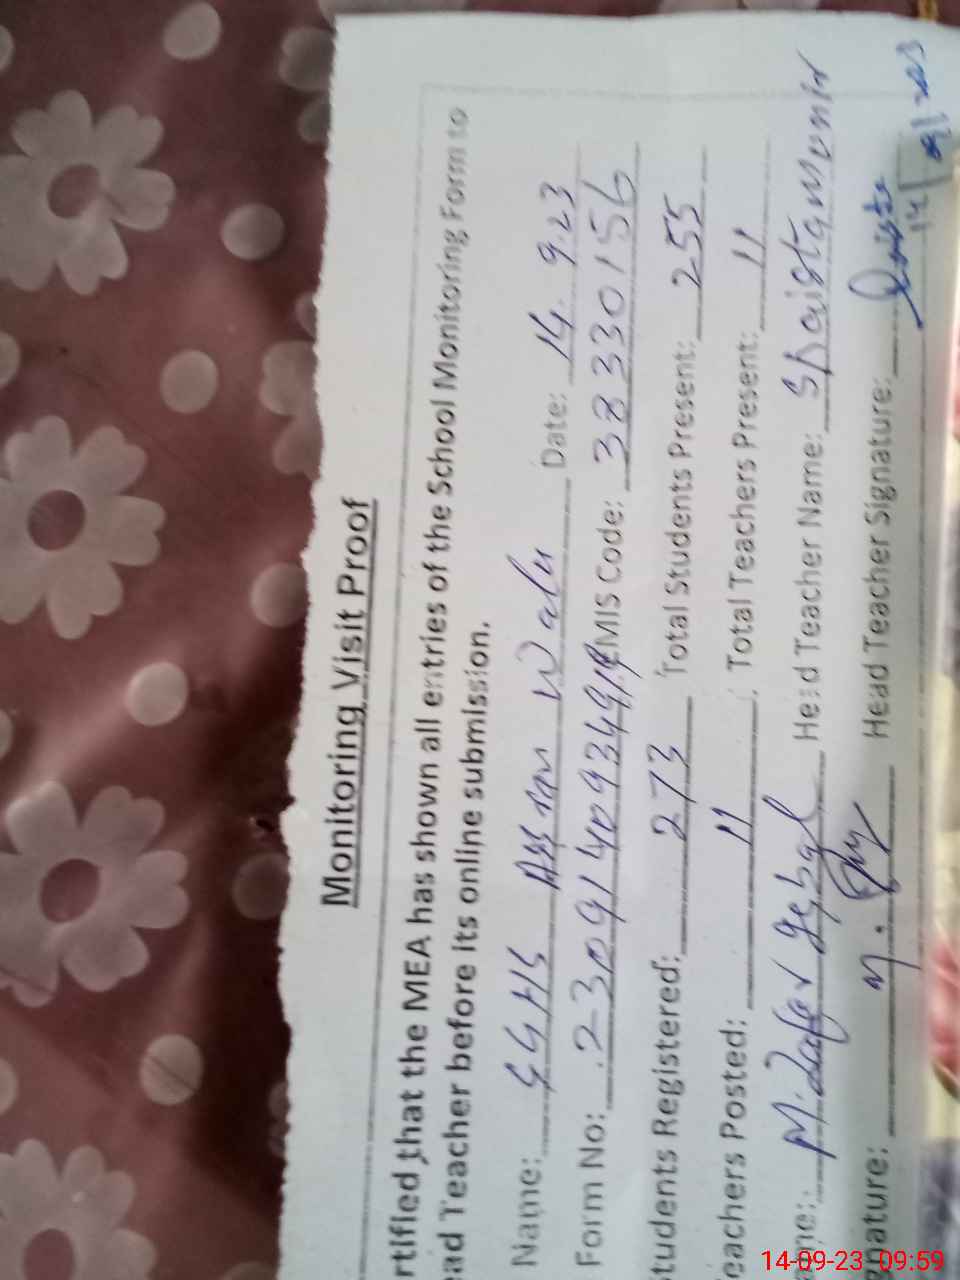 Monitoring Visit Proof
rtified that the MEA has shown all entries of the School Monitoring Form to
ead Teacher before its online submission.
Name: GGHS Assan Wali Date: 14.9.23
Form No: EMIS Code: 38330156
Students Registered: 273 Total Students Present: 255
eachers Posted: 11 Total Teachers Present: 11
me: M. Zafar Head Teacher Name: Shaista Munir
gnature: Head Teacher Signature:
14/09/2023
14-09-23 09:59